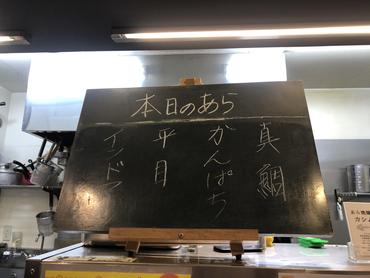 本日のあら
真鯛
かんぱち
平目
インドマ